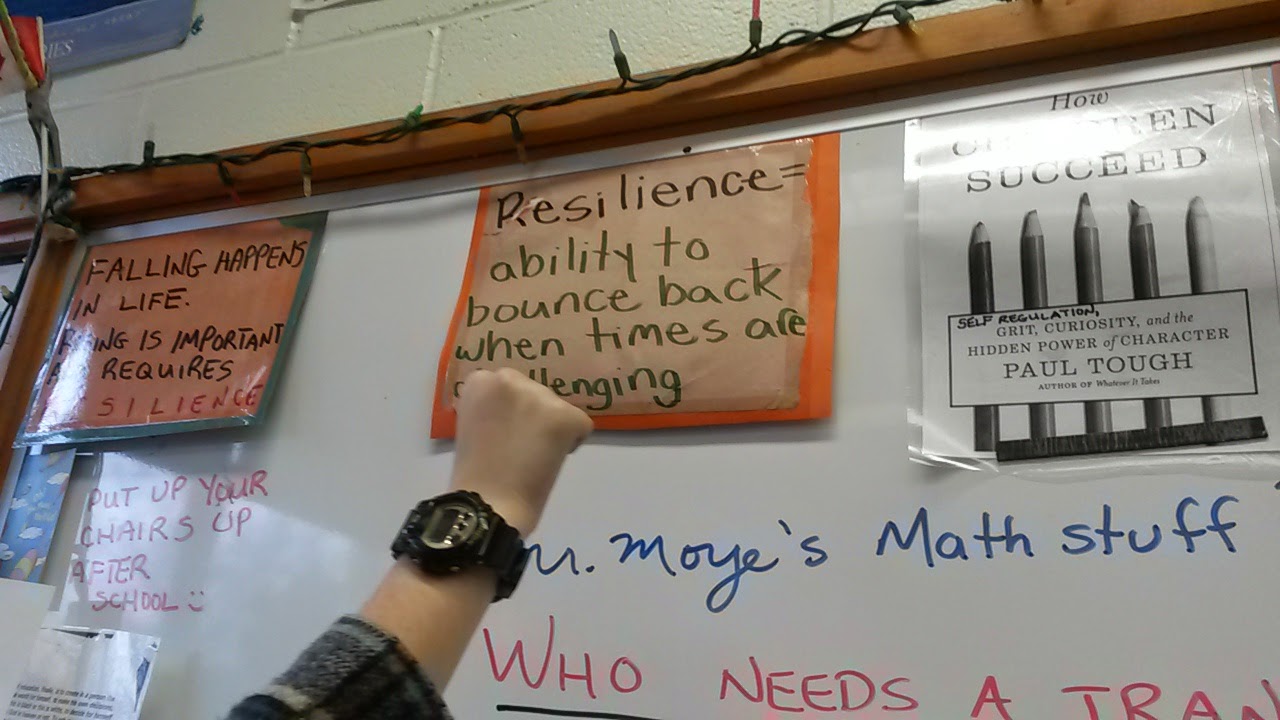 IES
FALLING HAPPENS
IN LIFE.
IS IMPORTANT
REQUIRES
SILIENCE
Resilience=
ability to
bounce back
when times are
lenging
How
SUCCEED
SELF REGULATION,
GRIT, CURIOSITY, and the
HIDDEN POWER of CHARACTER
PAUL TOUGH
AUTHOR OF Whatever It Takes
PUT UP YOUR
CHAIRS UP
AFTER
SCHOOL :)
Moye's Math stuff
WHO NEEDS A TRAN